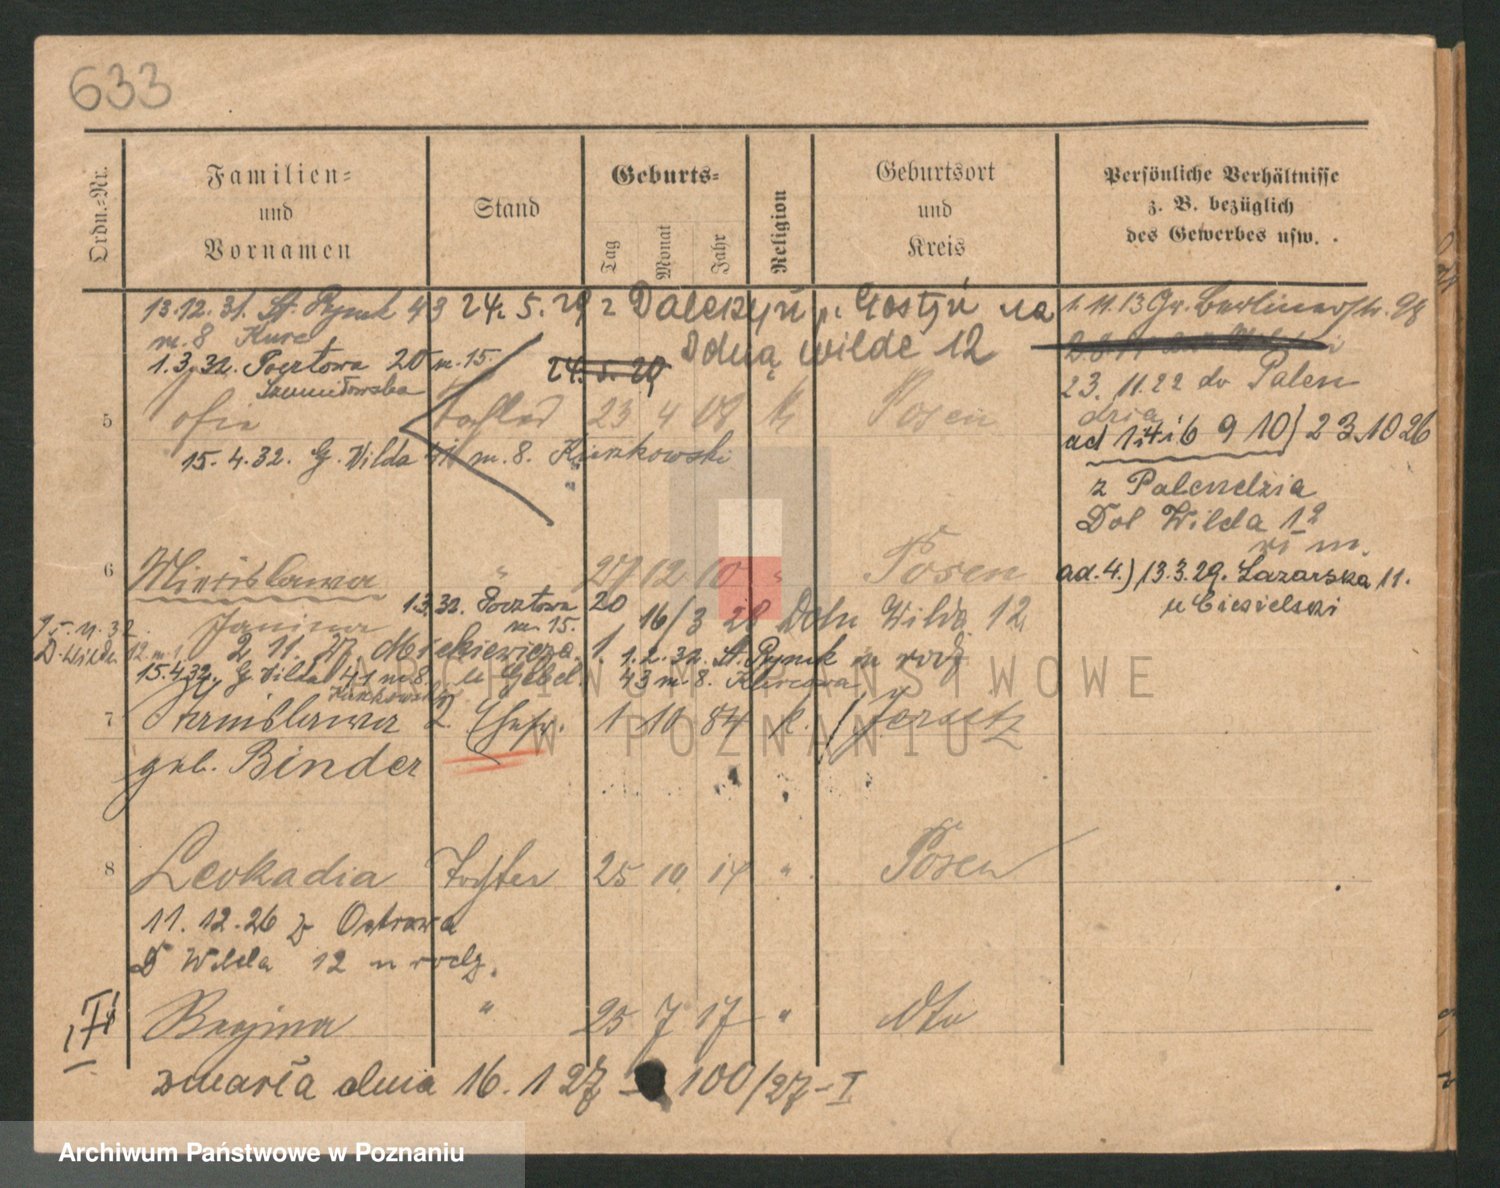 633
Ordn.-Nr.
Familien-
und
Vornamen
Stand
Geburts-
Tag
Monat
Jahr
Religion
Geburtsort
und
Kreis
Persönliche Verhältnisse
z. B. bezüglich
des Gewerbes usw.
13.12.31. St. Rynek 43 24.5.29 z Daleszyn p. Gostyń na
m. 8
1.3.32. Pocztowa 20 m. 15. 24.5.29 Dolną wilde 12
5 23 4 08 k Posen
15.4.32. G. Wilda 41 m. 8. Kurkowski
1.11.13 Gr. Berlinerstr. 98
23. 11.22 do Palen
dzia
ad 1 4 i 6 9 10) 23.10 26
z Palendzia
Dol Wilda 12
ad. 4.) 13.3.29. Lazarska 11.
u Ciesielski
6 Mirosława " 27 12 10 " Posen
1.3.32. Pocztowa 20
m. 15.
Janina 16/3 28 Doln Wilda 12
D. Wilda 12 m 1 2 11. 27 Mickiewicza 1. 1.2.32. St. Rynek u rodz
15.4.32. G. Wilda 41 m 8 43 m. 8.
7 Stanislawa 2. Ehefr. 1 10 84 k. Jersitz
geb. Binder
8 Leokadia Tochter 25 10 14 " Posen
11. 12. 26 z Ostrowa
D Wilda 12 u rodz.
Regina " 25 7 17 " Dto
zmarła dnia 16. 1 27 – 100/27 – I
ARCHIWUM PAŃSTWOWE
W POZNANIU
Archiwum Państwowe w Poznaniu